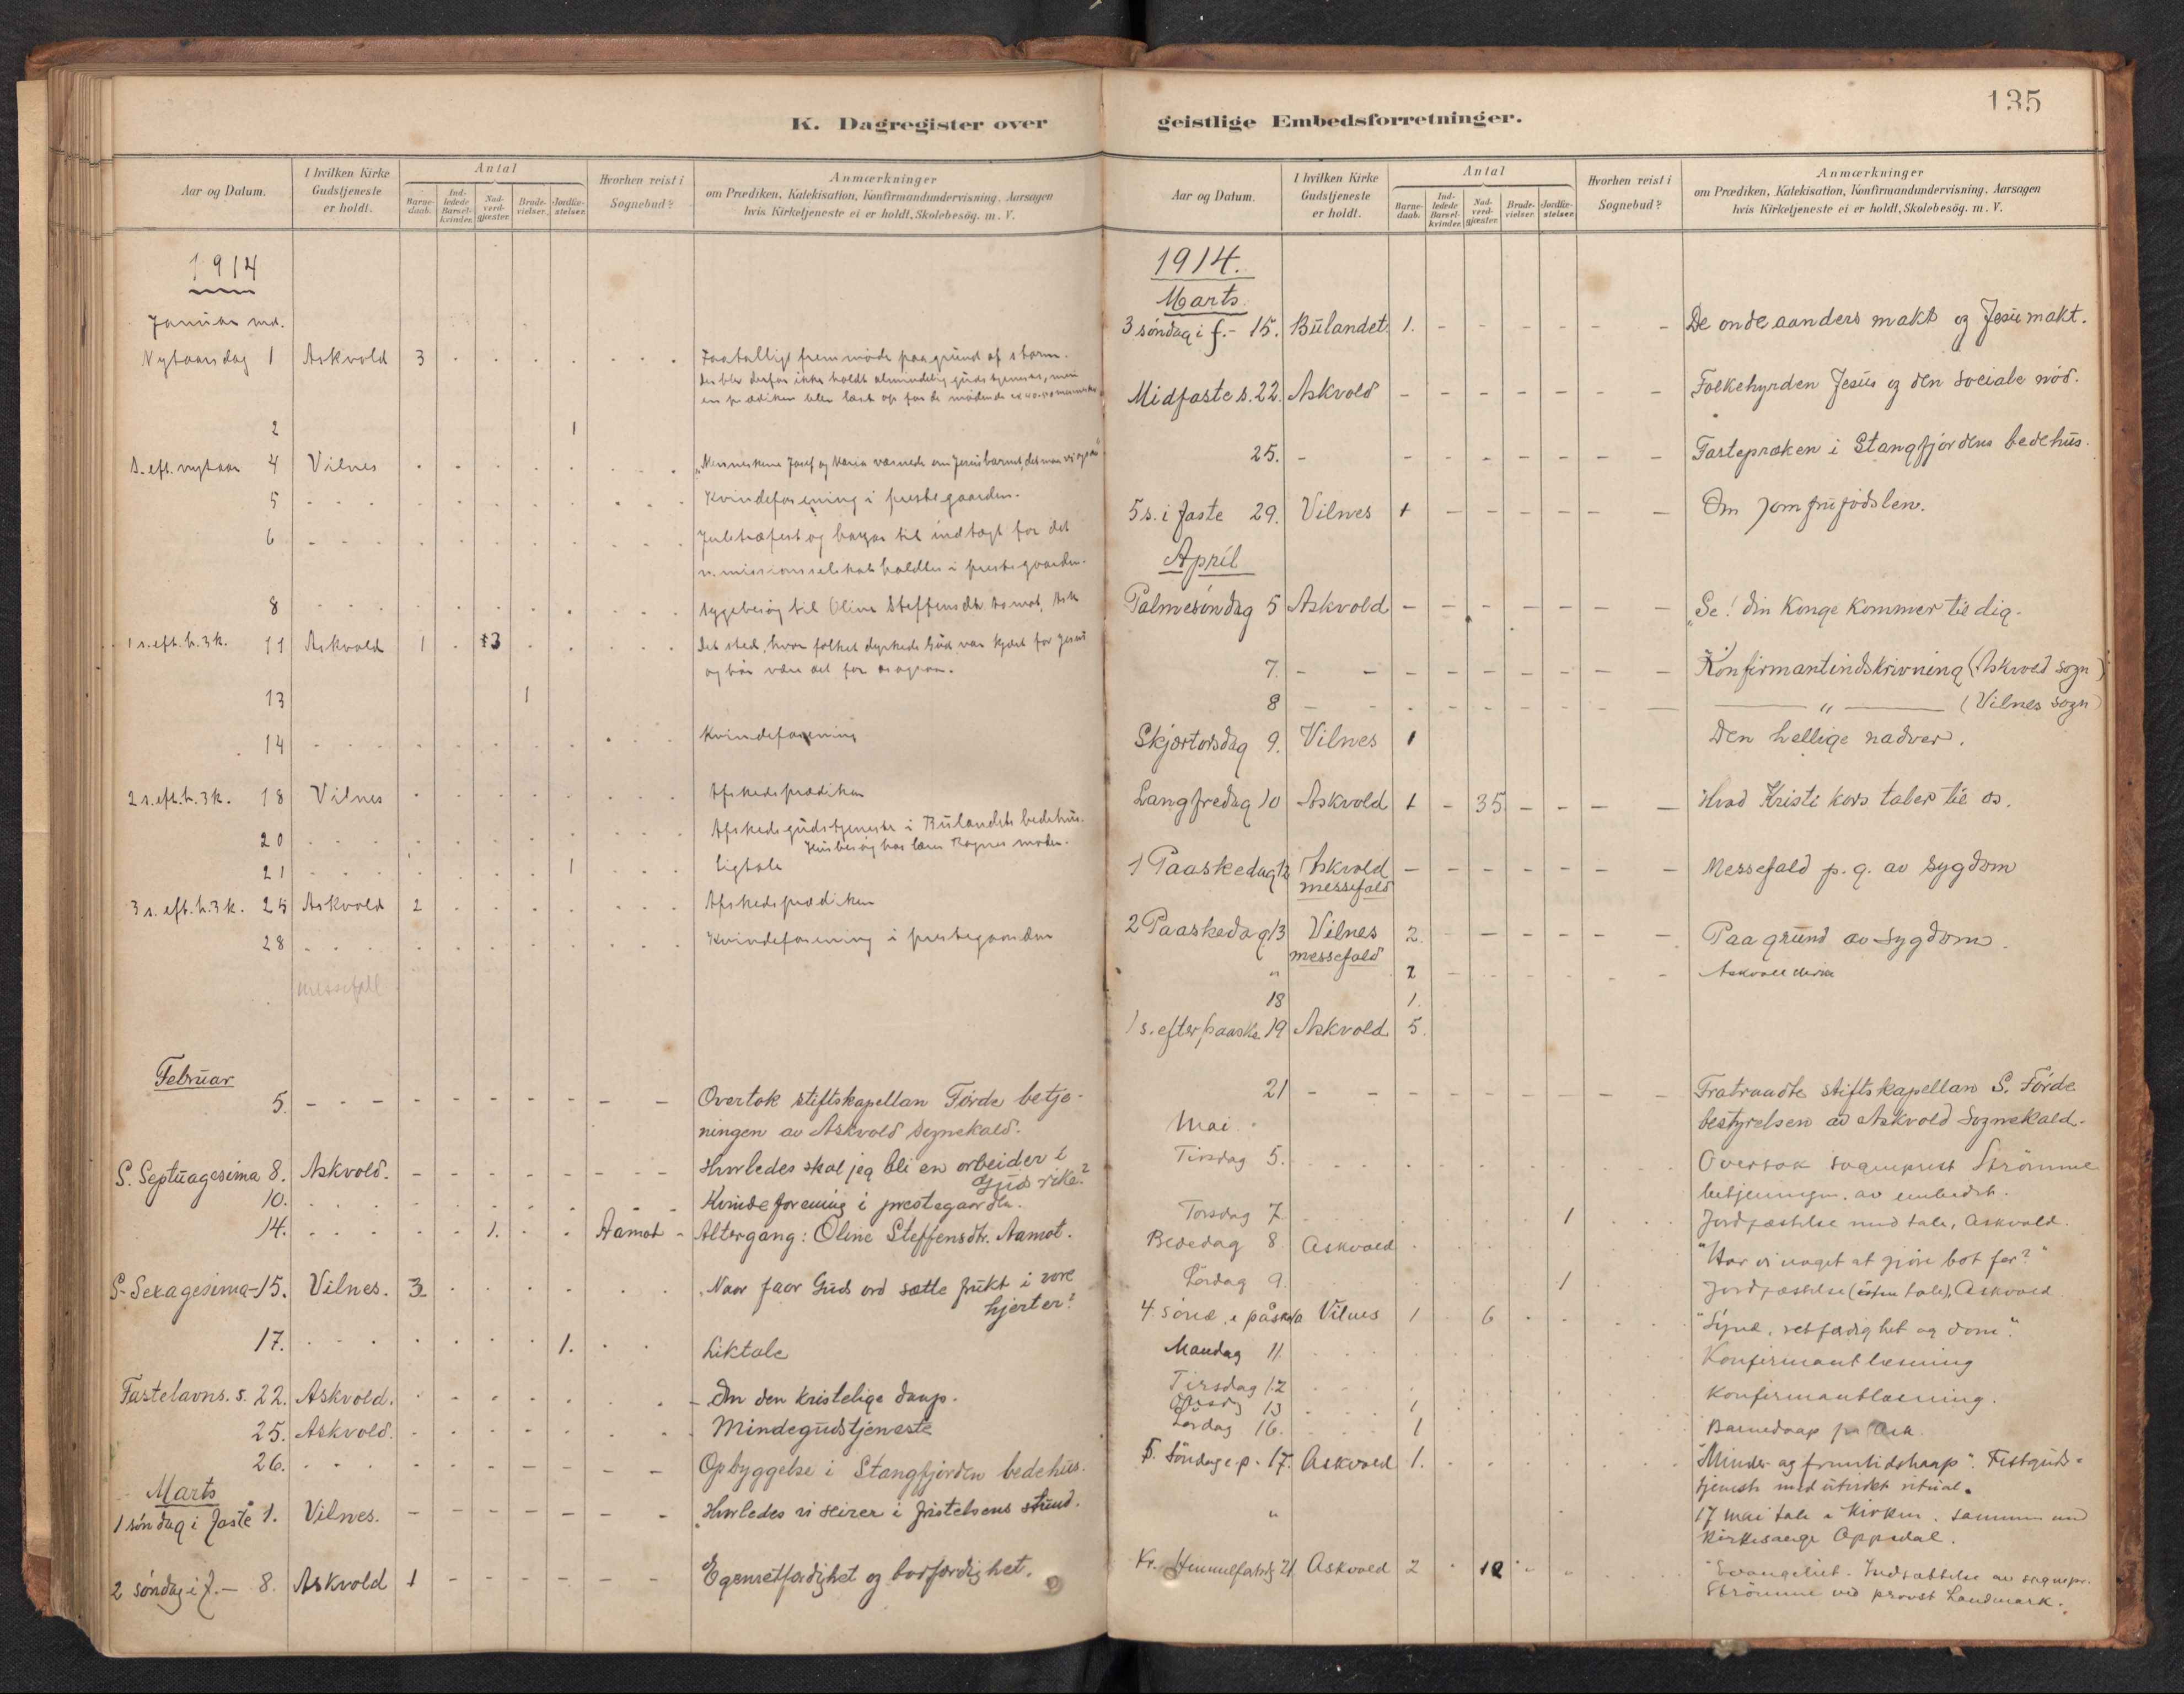 135
K. Dagregister over
Aar og Datum.
I hvilken Kirke Gudstjeneste er holdt.
Antal
Barne-daab.
Ind-ledede Barsel-kvinder.
Nad-verd-gjæster.
Brude-vielser.
Jordfæ-stelser.
Hvorhen reist i Sognebud?
Anmærkninger
om Prædiken, Katekisation, Konfirmandundervisning, Aarsagen
hvis Kirketjeneste ei er holdt, Skolebesög. m. V.
1914
Januar md.
Nytaarsdag 1 Askvold 3 Faatalligt fremmøde paa grund af storm.
Der blev derfor ikke holdt almindelig gudstjeneste, men
en prædiken blev læst op for de mødende
2 1
S. eft. nytaar 4 Vilnes "Menneskene Josef og Maria værnede om Jesusbarnet, det maa vi også"
5 Kvindeforening i prestegaarden.
6 Juletræfest og basar til indtægt for det
n. missionsselskab holdtes i prestegaarden.
8 Sygebesøg til Oline Steffensdtr. Aamot, Ask
1 s. eft. h. 3 k. 11 Askvold 1 13 Det sted, hvor folket dyrkede Gud var kjært for Jesus
og bør være det for os ogsaa.
13 1
14 Kvindeforening
2 s. eft. h. 3 k. 18 Vilnes Afskedsprædiken
20 Afskedsgudstjeneste i Bulandets bedehus.
Husbesøg hos lærer Ragnes moder.
21 1 Ligtale
3 s. eft. h. 3 k. 25 Askvold 2 Afskedsprædiken
28 Kvindeforening i prestegaarden
messefall
Februar
5. Overtok stiftskapellan Førde betje-
ningen av Askvold sognekald.
S. Septuagesima 8. Askvold. Hvorledes skal jeg bli en arbeider i
Guds rike?
10. Kvindeforening i prestegaarden.
14. 1. Aamot Altergang: Oline Steffensdtr. Aamot.
S. Sexagesima 15. Vilnes. 3 Naar faar Guds ord sætte frukt i vore
hjerter?
17. 1. Liktale
Fastelavns. s. 22. Askvold. Om den kristelige daap.
25. Askvold. Mindegudstjeneste
26. Opbyggelse i Stangfjorden bedehus.
Marts
1 søndag i faste 1. Vilnes. Hvorledes vi seirer i fristelsens stund.
2 søndag i f. 8. Askvold 1 Egenretfærdighet og botfærdighet.
geistlige Embedsforretninger.
Aar og Datum.
I hvilken Kirke Gudstjeneste er holdt.
Antal
Barne-daab.
Ind-ledede Barsel-kvinder.
Nad-verd-gjæster.
Brude-vielser.
Jordfæ-stelser.
Hvorhen reist i Sognebud?
Anmærkninger
om Prædiken, Katekisation, Konfirmandundervisning, Aarsagen
hvis Kirketjeneste ei er holdt, Skolebesög. m. V.
1914.
Marts.
3 søndag i f. - 15. Bulandet. 1. De onde aanders makt og Jesu makt.
Midfaste s. 22. Askvold Folkehyrden Jesus og den sociale nød.
25. Fastepræken i Stangfjordens bedehus.
5 s. i faste 29. Vilnes 1 Om jomfrufødslen.
April
Palmesøndag 5 Askvold "Se! din Konge kommer til dig.
7. Konfirmantindskrivning (Askvold sogn)
8 " (Vilnes sogn)
Skjærtorsdag 9. Vilnes 1 Den hellige nadver.
Langfredag 10 Askvold 1 35 Hvad Kristi kors taler til os.
1 Paaskedag 12 Askvold Messefald p. g. av sygdom
messefald
2 Paaskedag 13 Vilnes 2. Paa grund av sygdom.
messefald
" 2 Askvold
18 1.
1 s. efter paaske 19 Askvold 5.
21 Fratraadte stiftskapellan S. Førde
bestyrelsen av Askvold Sognekald.
Mai
Tirsdag 5. Overtok sogneprest Strømme
betjeningen av embedet.
Torsdag 7 1 Jordfæstelse med tale, Askvold.
Bededag 8. Askvold "Har vi noget at gjøre bot for?"
Lørdag 9. 1 Jordfæstelse (uten tale), Askvold
4. sønd. e påske 10 Vilnes 1 6 "Synd, retfærdighet og dom".
Mandag 11. Konfirmantlesning
Tirsdag 12 Konfirmantlæsning.
Onsdag 13 1
Lørdag 16. 1 Barnedaap
5. Søndag e. p. 17. Askvold 1. "Minder og fremtidshaap". Festguds-
tjeneste med utvidet ritual.
" 17 mai tale i Kirken, sammen med
kirkesanger Oppedal.
Kr. Himmelfartsdg 21 Askvold 2 12 "Evangeliet. Indsættelse av sognepr.
Strømme ved provst Landmark.